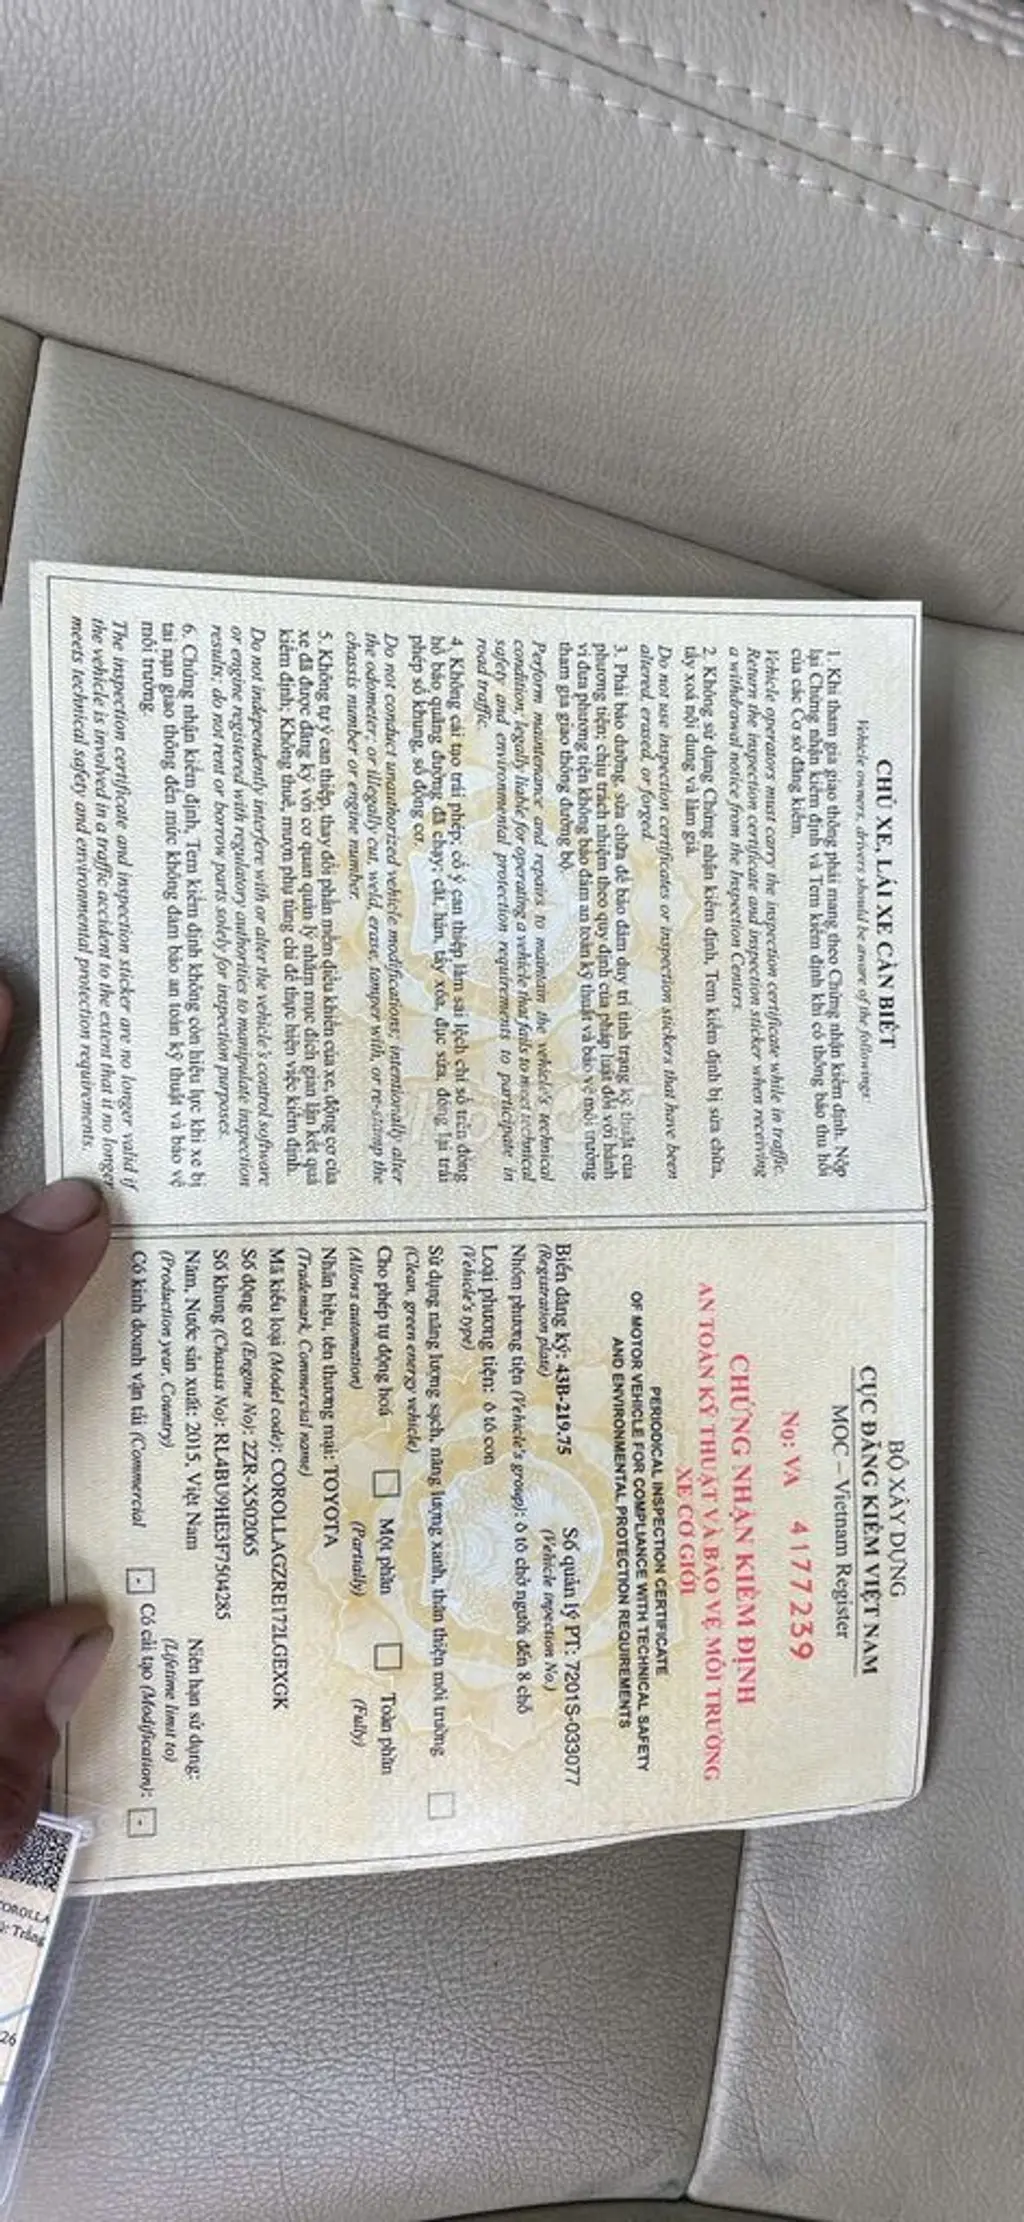 CHỦ XE, LÁI XE CẦN BIẾT
Vehicle owners, drivers should be aware of the following:
1. Khi tham gia giao thông phải mang theo Chứng nhận kiểm định. Nộp
lại Chứng nhận kiểm định và Tem kiểm định khi có thông báo thu hồi
của các Cơ sở đăng kiểm.
Vehicle operators must carry the inspection certificate while in traffic.
Return the inspection certificate and inspection sticker when receiving
a withdrawal notice from the Inspection Centers.
2. Không sử dụng Chứng nhận kiểm định, Tem kiểm định bị sửa chữa,
tẩy xoá nội dung và làm giả.
Do not use inspection certificates or inspection stickers that have been
altered, erased, or forged.
3. Phải bảo dưỡng, sửa chữa để bảo đảm duy trì tình trạng kỹ thuật của
phương tiện; chịu trách nhiệm theo quy định của pháp luật đối với hành
vi đưa phương tiện không bảo đảm an toàn kỹ thuật và bảo vệ môi trường
tham gia giao thông đường bộ.
Perform maintenance and repairs to maintain the vehicle's technical
condition; legally liable for operating a vehicle that fails to meet technical
safety and environmental protection requirements to participate in
road traffic.
4. Không cải tạo trái phép, cố ý can thiệp làm sai lệch chỉ số trên đồng
hồ báo quãng đường đã chạy; cắt, hàn, tẩy xóa, đục sửa, đóng lại trái
phép số khung, số động cơ.
Do not conduct unauthorized vehicle modifications; intentionally alter
the odometer; or illegally cut, weld, erase, tamper with, or re-stamp the
chassis number or engine number.
5. Không tự ý can thiệp, thay đổi phần mềm điều khiển của xe, động cơ của
xe đã được đăng ký với cơ quan quản lý nhằm mục đích gian lận kết quả
kiểm định; Không thuê, mượn phụ tùng chỉ để thực hiện việc kiểm định.
Do not independently interfere with or alter the vehicle's control software
or engine registered with regulatory authorities to manipulate inspection
results; do not rent or borrow parts solely for inspection purposes.
6. Chứng nhận kiểm định, Tem kiểm định không còn hiệu lực khi xe bị
tai nạn giao thông đến mức không đảm bảo an toàn kỹ thuật và bảo vệ
môi trường.
The inspection certificate and inspection sticker are no longer valid if
the vehicle is involved in a traffic accident to the extent that it no longer
meets technical safety and environmental protection requirements.
BỘ XÂY DỰNG
CỤC ĐĂNG KIỂM VIỆT NAM
MOC – Vietnam Register
No: VA 4177239
CHỨNG NHẬN KIỂM ĐỊNH
AN TOÀN KỸ THUẬT VÀ BẢO VỆ MÔI TRƯỜNG
XE CƠ GIỚI
PERIODICAL INSPECTION CERTIFICATE
OF MOTOR VEHICLE FOR COMPLIANCE WITH TECHNICAL SAFETY
AND ENVIRONMENTAL PROTECTION REQUIREMENTS
Biển đăng ký: 43B-219.75 Số quản lý PT: 7201S-033077
(Registration plate) (Vehicle inpection No.)
Nhóm phương tiện (Vehicle's group): ô tô chở người đến 8 chỗ
Loại phương tiện: ô tô con
(Vehicle's type)
Sử dụng năng lượng sạch, năng lượng xanh, thân thiện môi trường
(Clean, green energy vehicle)
Cho phép tự động hoá Một phần Toàn phần
(Allows automation) (Partially) (Fully)
Nhãn hiệu, tên thương mại: TOYOTA
(Trademark, Commercial name)
Mã kiểu loại (Model code): COROLLAGZRE172LGEXGK
Số động cơ (Engine No): 2ZR-X502065
Số khung (Chassis No): RL4BU9HE3F7504285
Năm, Nước sản xuất: 2015, Việt Nam Niên hạn sử dụng:
(Production year, Country) (Lifetime limit to)
Có kinh doanh vận tải (Commercial - Có cải tạo (Modification): -
COROLLA
Trắng
26